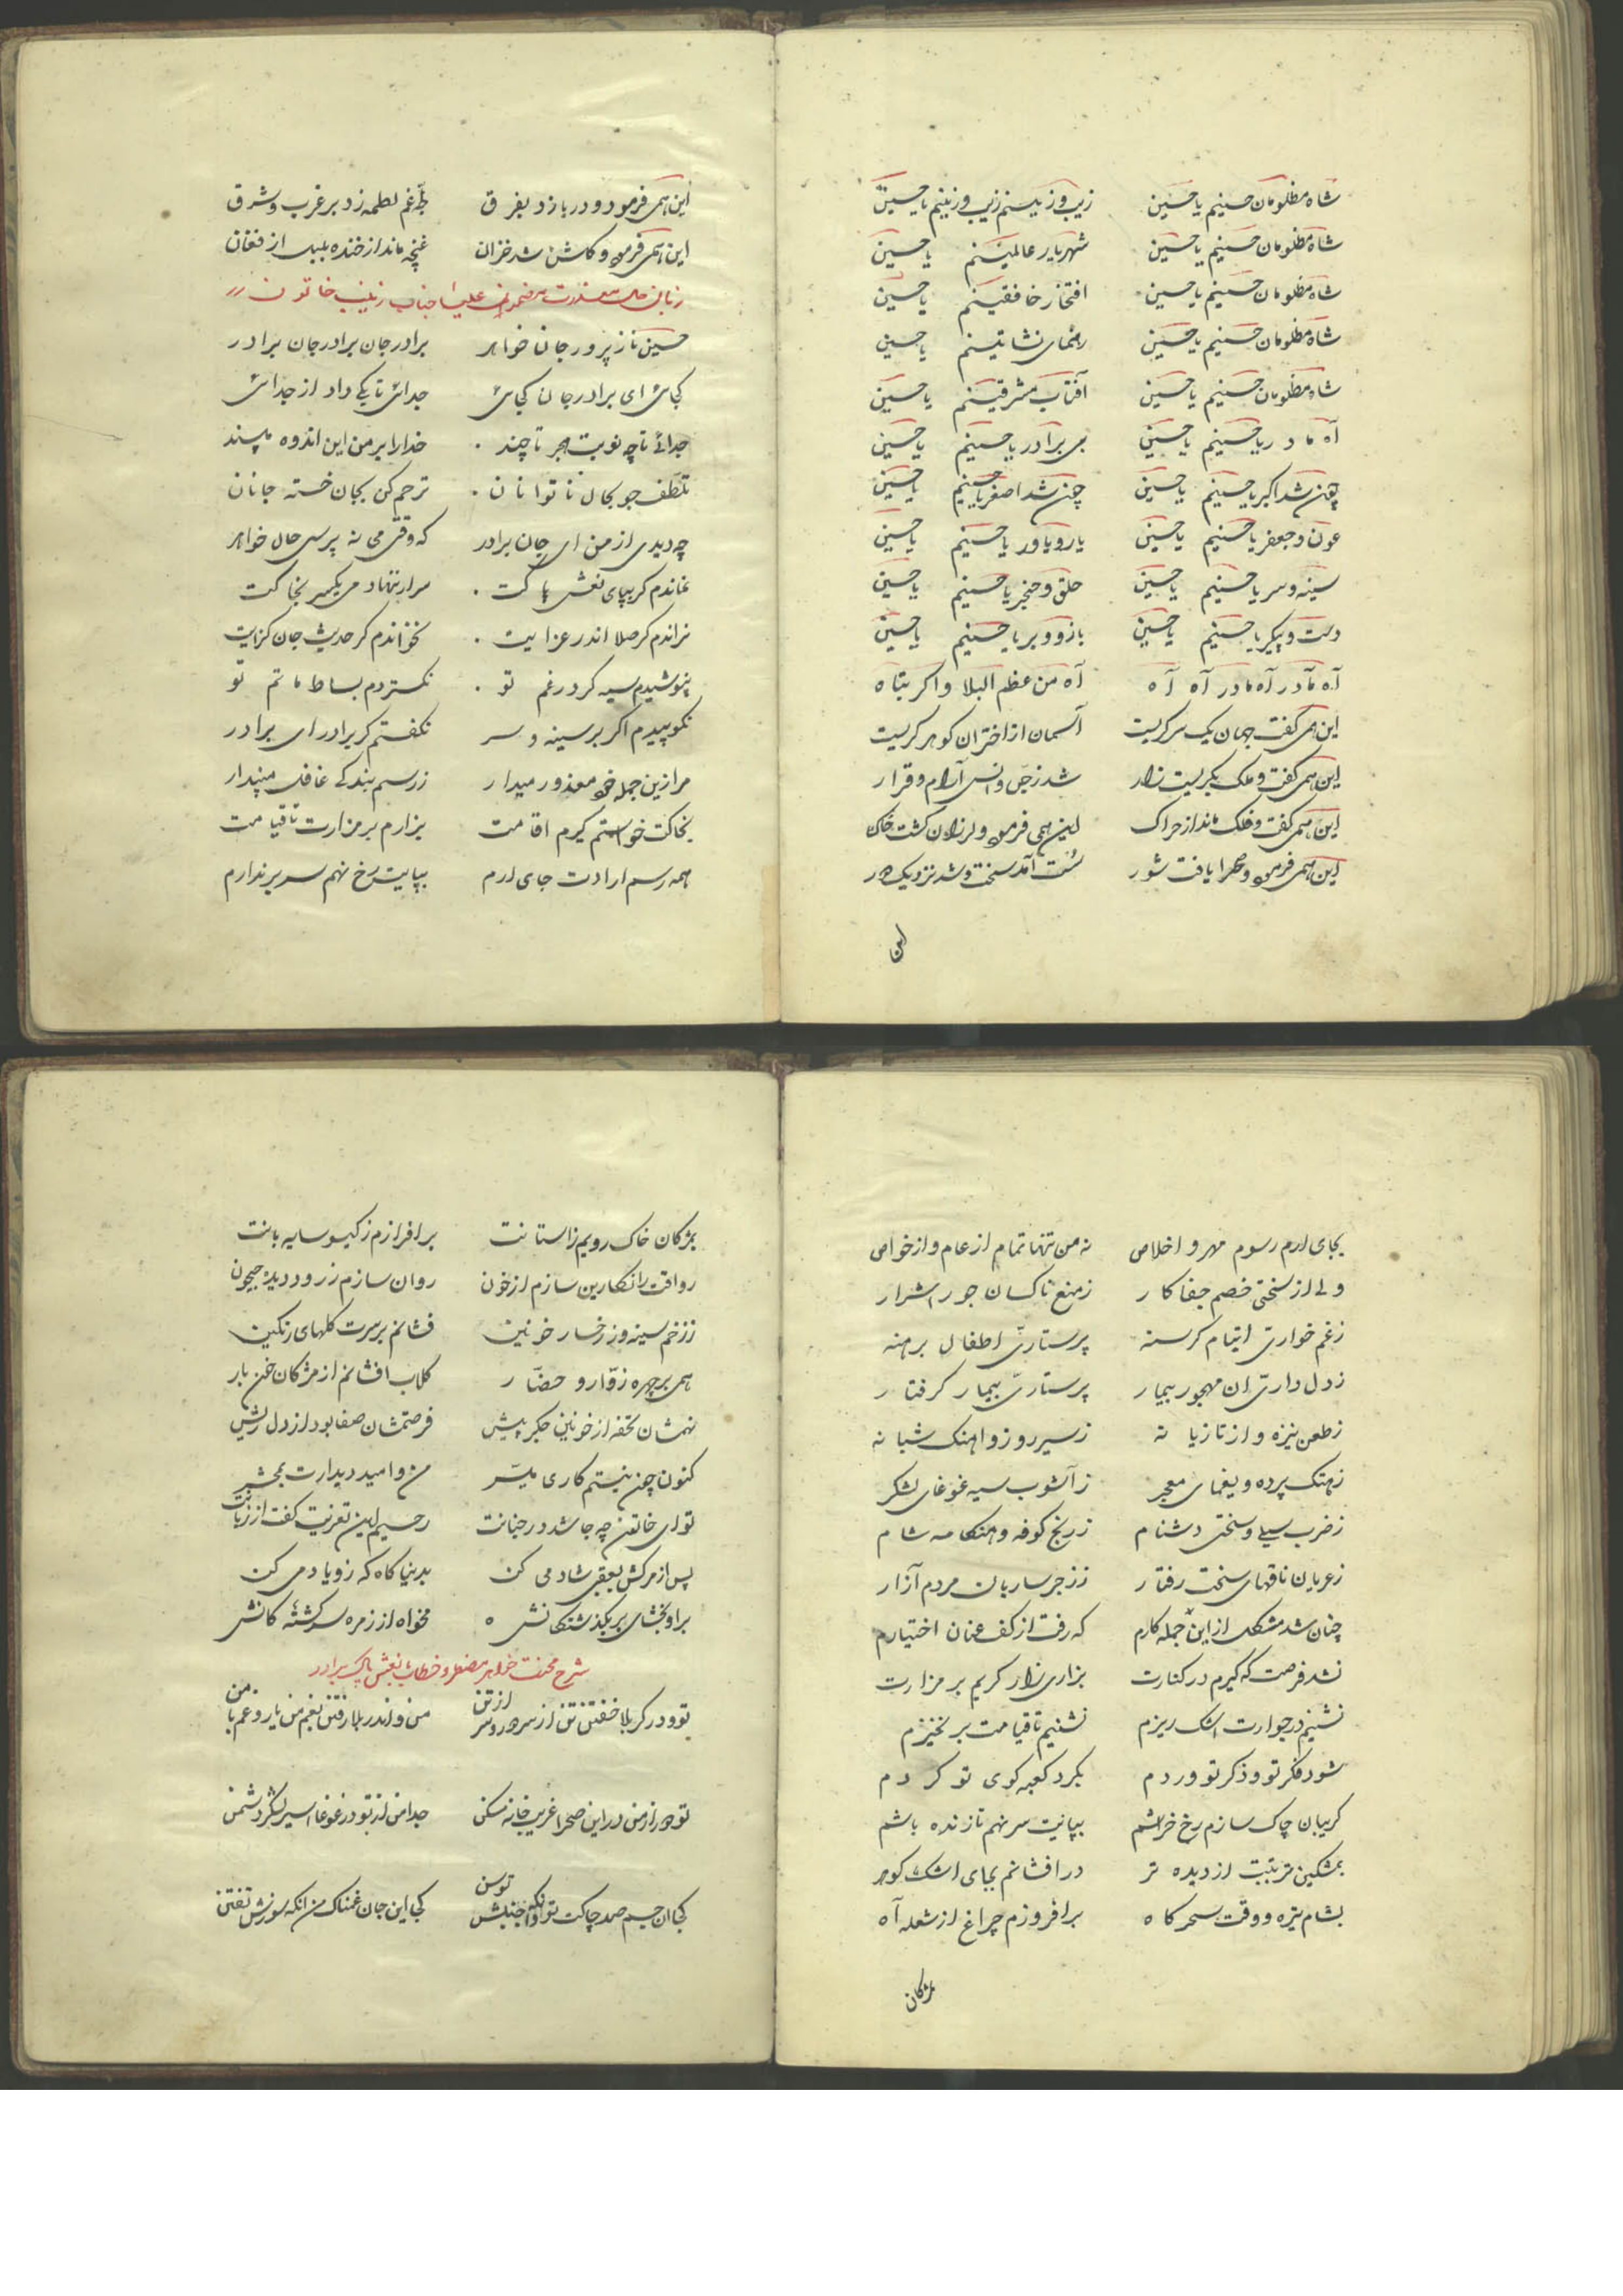 شاه مظلومان حسینم یا حسین زیب و زینم زیب و زینم یا حسین
شاه مظلومان حسینم یا حسین شهریار عالمینم یا حسین
شاه مظلومان حسینم یا حسین افتخار خافقینم یا حسین
شاه مظلومان حسینم یا حسین رهنمای نشاتینم یا حسین
شاه مظلومان حسینم یا حسین آفتاب مشرقینم یا حسین
آه مادر یا حسینم یا حسین بی برادر یا حسینم یا حسین
چون شد اکبر یا حسینم یا حسین چون شد اصغر یا حسینم یا حسین
عون و جعفر یا حسینم یا حسین یار و یاور یا حسینم یا حسین
سینه و سر یا حسینم یا حسین حلق و حنجر یا حسینم یا حسین
دست و پیکر یا حسینم یا حسین بازو و بر یا حسینم یا حسین
آه مادر آه مادر آه آه آه من عظم البلا واکربتاه
این همی گفت جهان یک سر گریست آسمان از اختران گوهر گریست
این همی گفت و ملک بگریست زار شد ز جن و انس آرام و قرار
این همی گفت و فلک ماند از حراک این همی فرمود و لرزان گشت خاک
این همی فرمود و صحرا یافت شور سست آمد سخت و شد نزدیک دور
این
این همی فرمود و دریا زد بفرق بط غم لطمه زد بر غرب و شرق
این همی فرمود و گلشن شد خزان غنچه ماند از خنده بلبل از فغان
زبان حال علیا جناب زینب خاتون
حسین ناز پرور جان خواهر برادر جان برادر جان برادر
کجائی ای برادر جان کجائی جدائی تا بکی داد از جدائی
جدائی تا چه نوبت هجر تا چند خدارا بر من این اندوه مپسند
تلطف جو بحال ناتوانان ترحم کن بجان خسته جانان
چه دیدی از من ای جان برادر که وقتی می نه پرسی حال خواهر
نماندم گر بپای نعش پاکت مرا تنها دمی یکسر بخاکت
نراندم گر صلا اندر عزایت نخواندم گر حدیث جان گزایت
نپوشیدم سیه گر در غم تو نگستردم بساط ماتم تو
نکوبیدم اگر بر سینه و سر نگفتم گر برادر ای برادر
مرا زین جمله خود معذور میدار ز رسم بندگی غافل مپندار
بخاکت خواستم گیرم اقامت بزارم بر مزارت تا قیامت
همه رسم ارادت جای آرم بپایت رخ نهم سر بر ندارم
بجای آرم رسوم مهر و اخلاص نه من تنها تمام از عام و از خواص
ولی از سختی خصم جفا کار ز منع ناکسان جور اشرار
ز غم خواری ایتام گرسنه پرستاری اطفال برهنه
ز دل داری ان مهجور بیمار پرستاری بیمار گرفتار
ز طعن نیزه و از تازیانه ز سیر روز و اهنگ شبانه
ز هتک پرده و یغمای معجر ز آشوب سپه غوغای لشکر
ز ضرب سیلی و سختی دشنام ز رنج کوفه و هنگامه شام
ز عریان ناقهای سخت رفتار ز زجر ساربان مردم آزار
چنان شد مشکل از این جمله کارم که رفت از کف عنان اختیارم
نشد فرصت که گیرم در کنارت بزاری زار گریم بر مزارت
نشینم در جوارت اشک ریزم نشینم تا قیامت بر نخیزم
شود فکر تو و ذکر تو وردم بگرد کعبه کوی تو گردم
گریبان چاک سازم رخ خراشم بپایت سر نهم تا زنده باشم
بمشکین تربتت از دیده تر در افشانم بجای اشک گوهر
بشام تیره و وقت سحرگاه برافروزم چراغ از شعله آه
بمژگان
بمژگان خاک رویم زاستانت برافرازم ز گیسو سایه بانت
رواقت را نگارین سازم از خون روان سازم ز رود دیده جیحون
ز زخم سینه وز رخسار خونین فشانم بر سرت گلهای رنگین
همی بر چهره زوار و حضار گلاب افشانم از مژگان خون بار
نهمشان تحفه از خونین جگر پیش فرستمشان صفا بود از دل ریش
کنون چون نیستم کاری میسر من و امید دیدارت بمحشر
تو ای خاتون چه جا شد در جنانت رحیم این تعزیت گفت از زبانت
پس از مرگش بعقبی شاد می کن بدنیا گاه گه زو یاد می کن
براو بخشای بر بگذشتگانش مخواه از زمره سرگشتگانش
شرح محنت خواهر مضطر و خطاب بنعش پاک برادر
تو و در کربلا خفتن تن از سر دور و سر از تن من و اندر بلا رفتن غم من یار و غم با من
تو دور از من در این صحرا غریب خانه مسکن جدا من از تو در غوغا اسیر لشکر دشمن
کجا ان جسم صد چاکت تو وانگه جنبش توسن کجا این جان غمناک من انکه سوزش تفتن